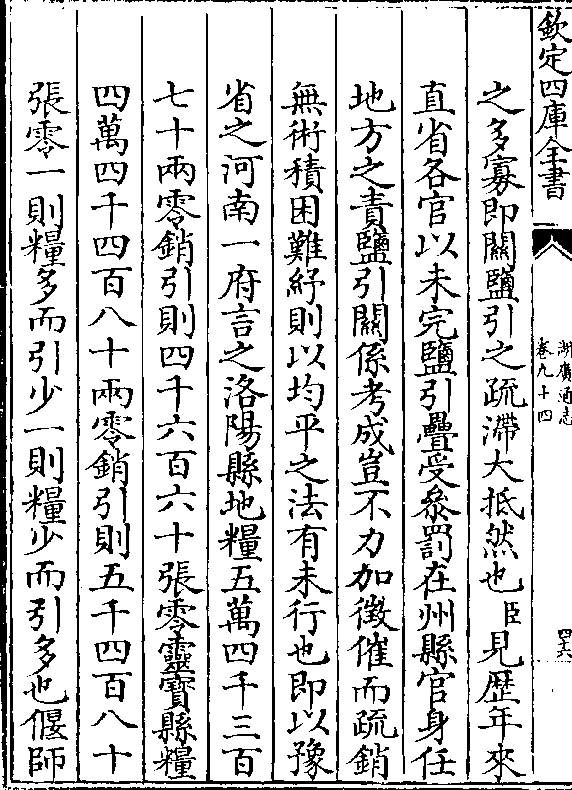 欽定四庫全書
湖廣通志
卷九十四
四六
之多寡即關鹽引之疏滯大抵然也臣見歴年來
直省各官以未完鹽引疊受叅罰在州縣官身任
地方之責鹽引關係考成豈不力加徴催而疏銷
無術積困難紓則以均平之法有未行也即以豫
省之河南一府言之洛陽縣地糧五萬四千三百
七十兩零銷引則四千六百六十張零靈寶縣糧
四萬四千四百八十兩零銷引則五千四百八十
張零一則糧多而引少一則糧少而引多也偃師